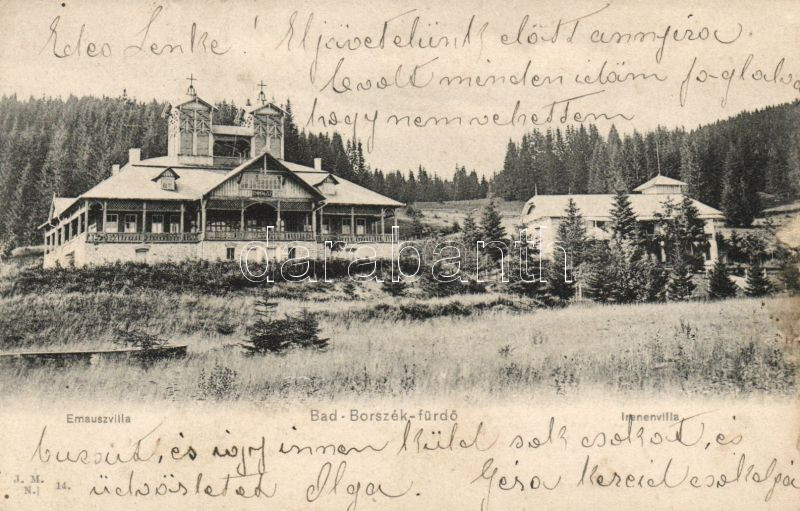 Edes Lenke! Eljövetelünk előtt annyira
le volt minden időm foglalva
hogy nem vehettem
darabanth.com
Emauszvilla
Bad-Borszék-fürdő
Irenenvilla
bucsút, és így innen küld sok csokot, és
J. M.
N. 14.
üdvösletet Olga. Géza kezeid csokolja